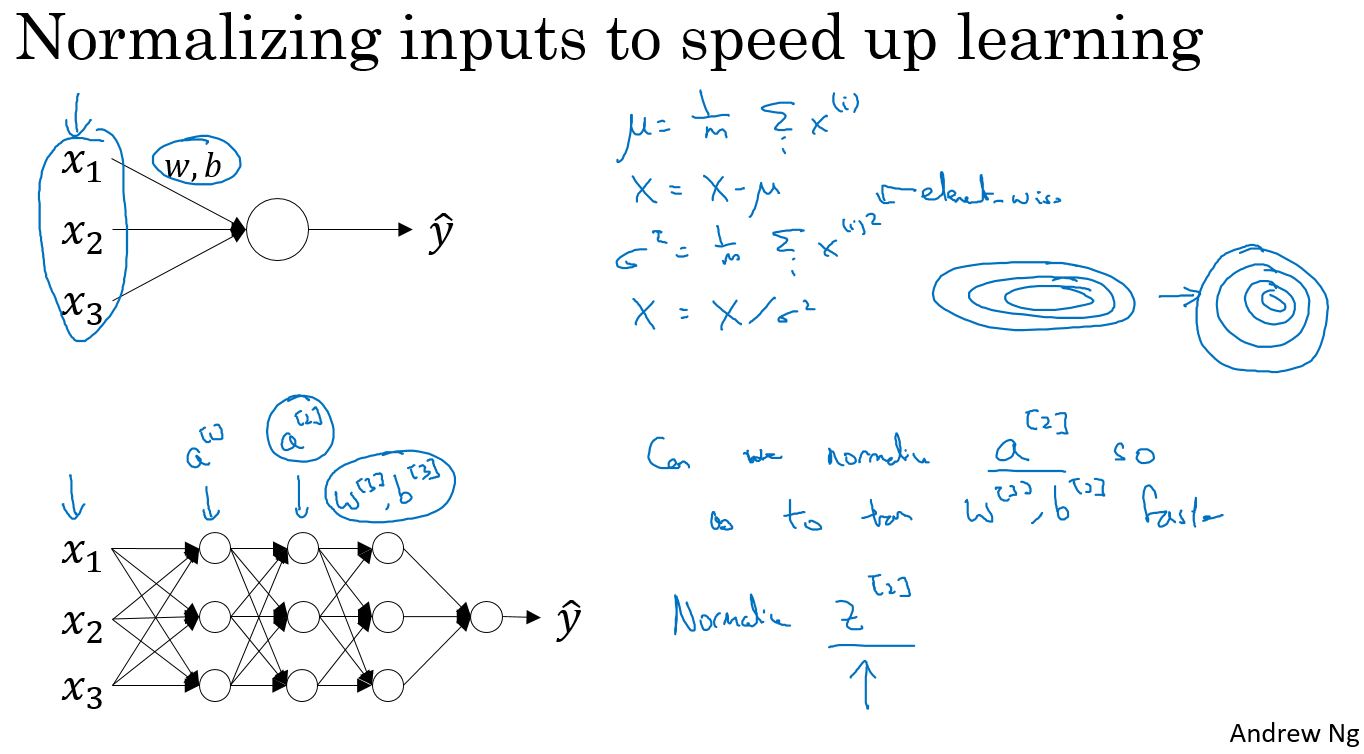 Normalizing inputs to speed up learning
x₁
w, b
x₂
ŷ
x₃
μ = 1/m Σᵢ x⁽ⁱ⁾
X = X - μ
← element-wise
σ² = 1/m Σᵢ x⁽ⁱ⁾²
X = X / σ²
→
a[1]
a[2]
w[3], b[3]
x₁
x₂
ŷ
x₃
Can we normalize a[2] so
as to train w[3], b[3] faster
Normalize z[2]
Andrew Ng